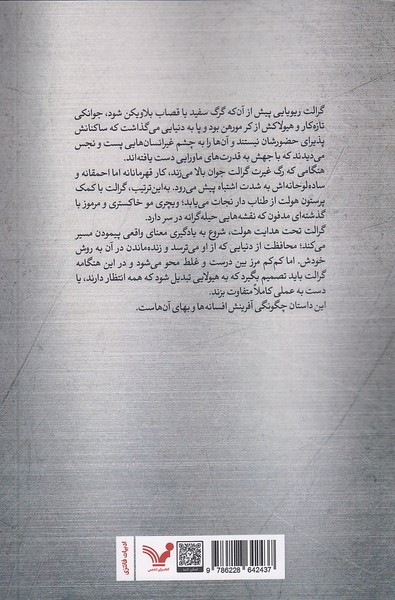 گرالت ریویایی پیش از آن‌که گرگ سفید یا قصاب بلاویکن شود، جوانکی
تازه‌کار و هیولاکش از کر مورهن بود و پا به دنیایی می‌گذاشت که ساکنانش
پذیرای حضورشان نیستند و آن‌ها را به چشم غیرانسان‌هایی پست و نجس
می‌دیدند که با جهش به قدرت‌های ماورایی دست یافته‌اند.
هنگامی که رگ غیرت گرالت جوان بالا می‌زند، کار قهرمانانه اما احمقانه و
ساده‌لوحانه‌اش به شدت اشتباه پیش می‌رود. به این‌ترتیب، گرالت با کمک
پرستون هولت از طناب دار نجات می‌یابد؛ ویچری مو خاکستری و مرموز با
گذشته‌ای مدفون که نقشه‌هایی حیله‌گرانه در سر دارد.
گرالت تحت هدایت هولت، شروع به یادگیری معنای واقعی پیمودن مسیر
می‌کند؛ محافظت از دنیایی که از او می‌ترسد و زنده‌ماندن در آن به روش
خودش. اما کم‌کم مرز بین درست و غلط محو می‌شود و در این هنگامه
گرالت باید تصمیم بگیرد که به هیولایی تبدیل شود که همه انتظار دارند، یا
دست به عملی کاملاً متفاوت بزند.
این داستان چگونگی آفرینش افسانه‌ها و بهای آن‌هاست.
ادبیات فانتزی
9 786228 642437